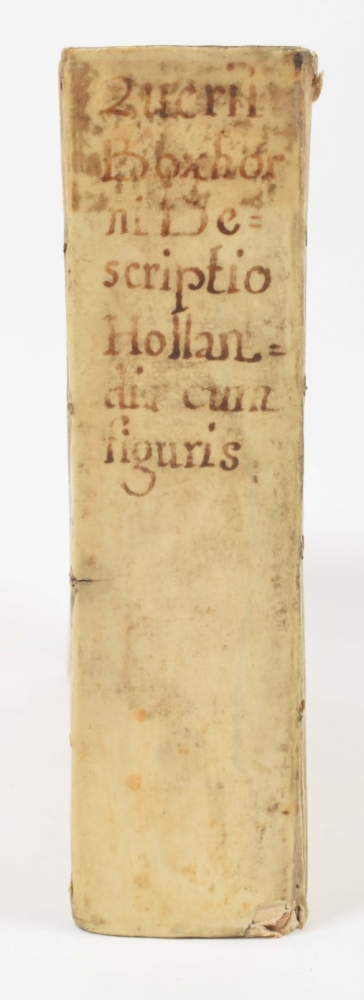 Zuerii
Boxhor
ni De=
scriptio
Hollan=
diæ cum
figuris